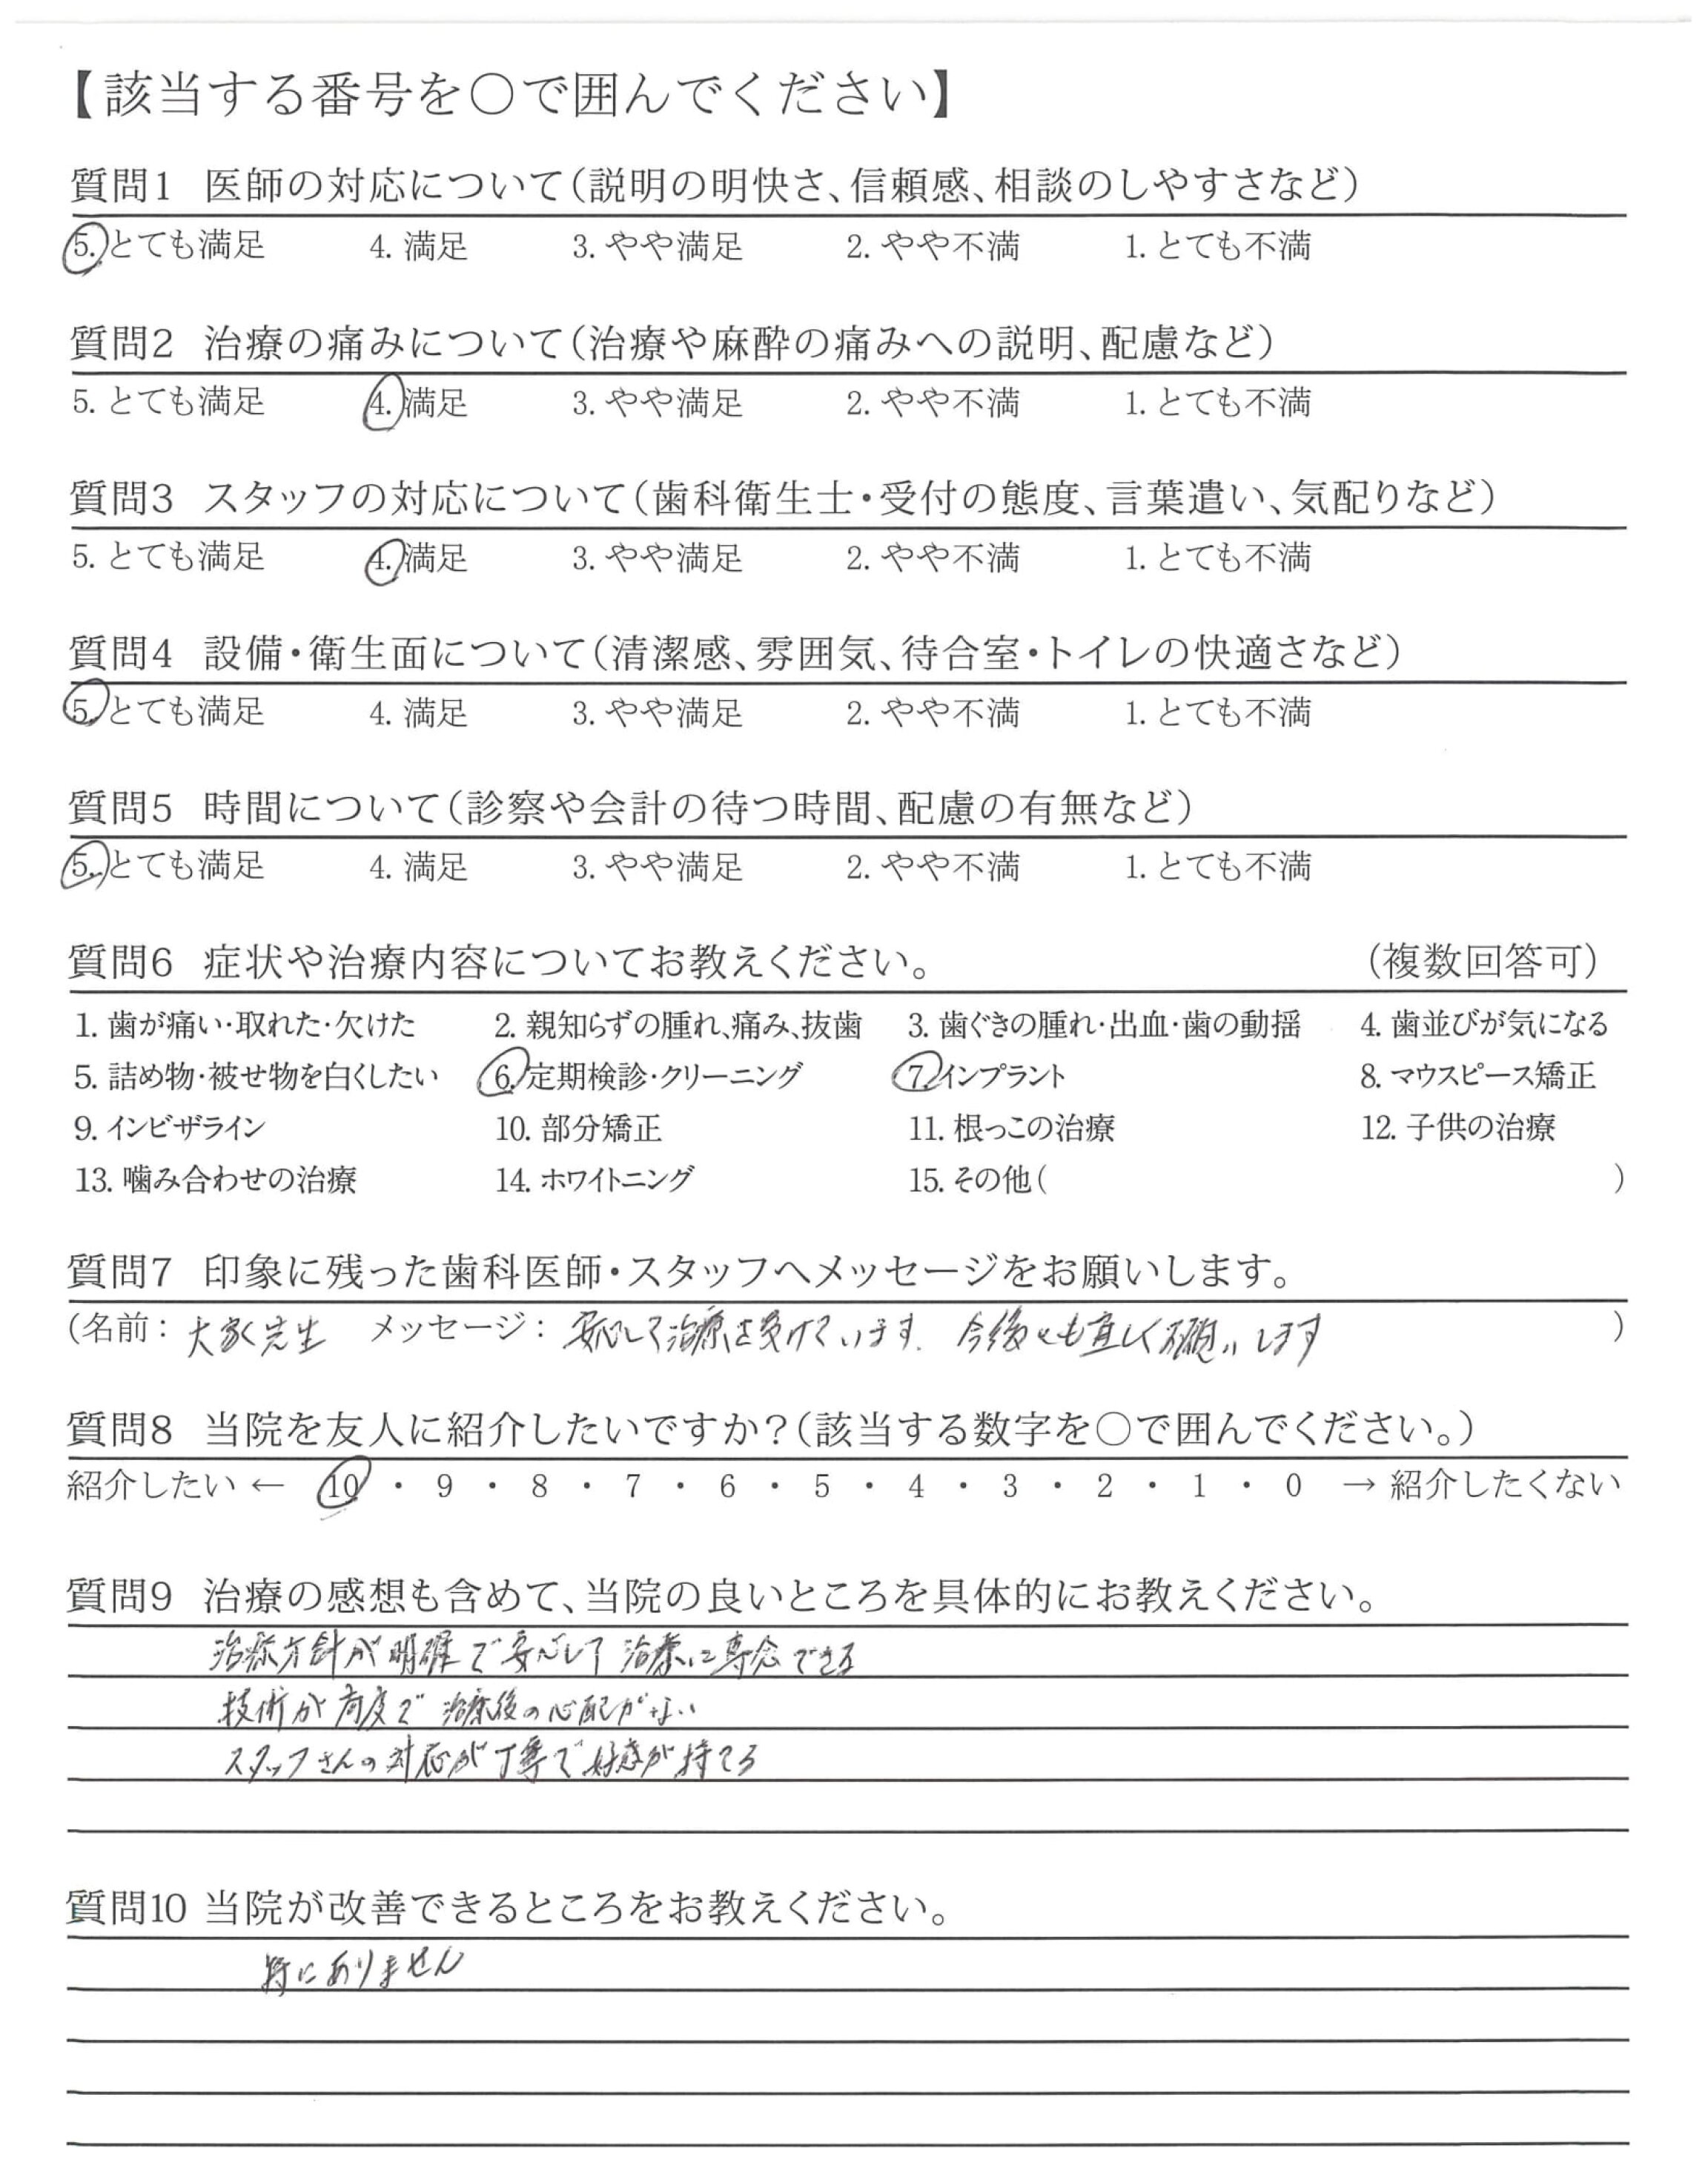 【該当する番号を〇で囲んでください】
質問1 医師の対応について（説明の明快さ、信頼感、相談のしやすさなど）
5. とても満足 4. 満足 3. やや満足 2. やや不満 1. とても不満
質問2 治療の痛みについて（治療や麻酔の痛みへの説明、配慮など）
5. とても満足 4. 満足 3. やや満足 2. やや不満 1. とても不満
質問3 スタッフの対応について（歯科衛生士・受付の態度、言葉遣い、気配りなど）
5. とても満足 4. 満足 3. やや満足 2. やや不満 1. とても不満
質問4 設備・衛生面について（清潔感、雰囲気、待合室・トイレの快適さなど）
5. とても満足 4. 満足 3. やや満足 2. やや不満 1. とても不満
質問5 時間について（診察や会計の待つ時間、配慮の有無など）
5. とても満足 4. 満足 3. やや満足 2. やや不満 1. とても不満
質問6 症状や治療内容についてお教えください。 （複数回答可）
1. 歯が痛い・取れた・欠けた 2. 親知らずの腫れ、痛み、抜歯 3. 歯ぐきの腫れ・出血・歯の動揺 4. 歯並びが気になる
5. 詰め物・被せ物を白くしたい 6. 定期検診・クリーニング 7. インプラント 8. マウスピース矯正
9. インビザライン 10. 部分矯正 11. 根っこの治療 12. 子供の治療
13. 噛み合わせの治療 14. ホワイトニング 15. その他（ ）
質問7 印象に残った歯科医師・スタッフへメッセージをお願いします。
（名前： 先生 メッセージ： 安心して治療を受けています. 今後とも宜しくお願いします ）
質問8 当院を友人に紹介したいですか？（該当する数字を〇で囲んでください。）
紹介したい ← 10 ・ 9 ・ 8 ・ 7 ・ 6 ・ 5 ・ 4 ・ 3 ・ 2 ・ 1 ・ 0 → 紹介したくない
質問9 治療の感想も含めて、当院の良いところを具体的にお教えください。
治療方針が明確で安心して治療に専念できる
技術が高度で治療後の心配がない
スタッフさんの対応が丁寧で好感が持てる
質問10 当院が改善できるところをお教えください。
特にありません